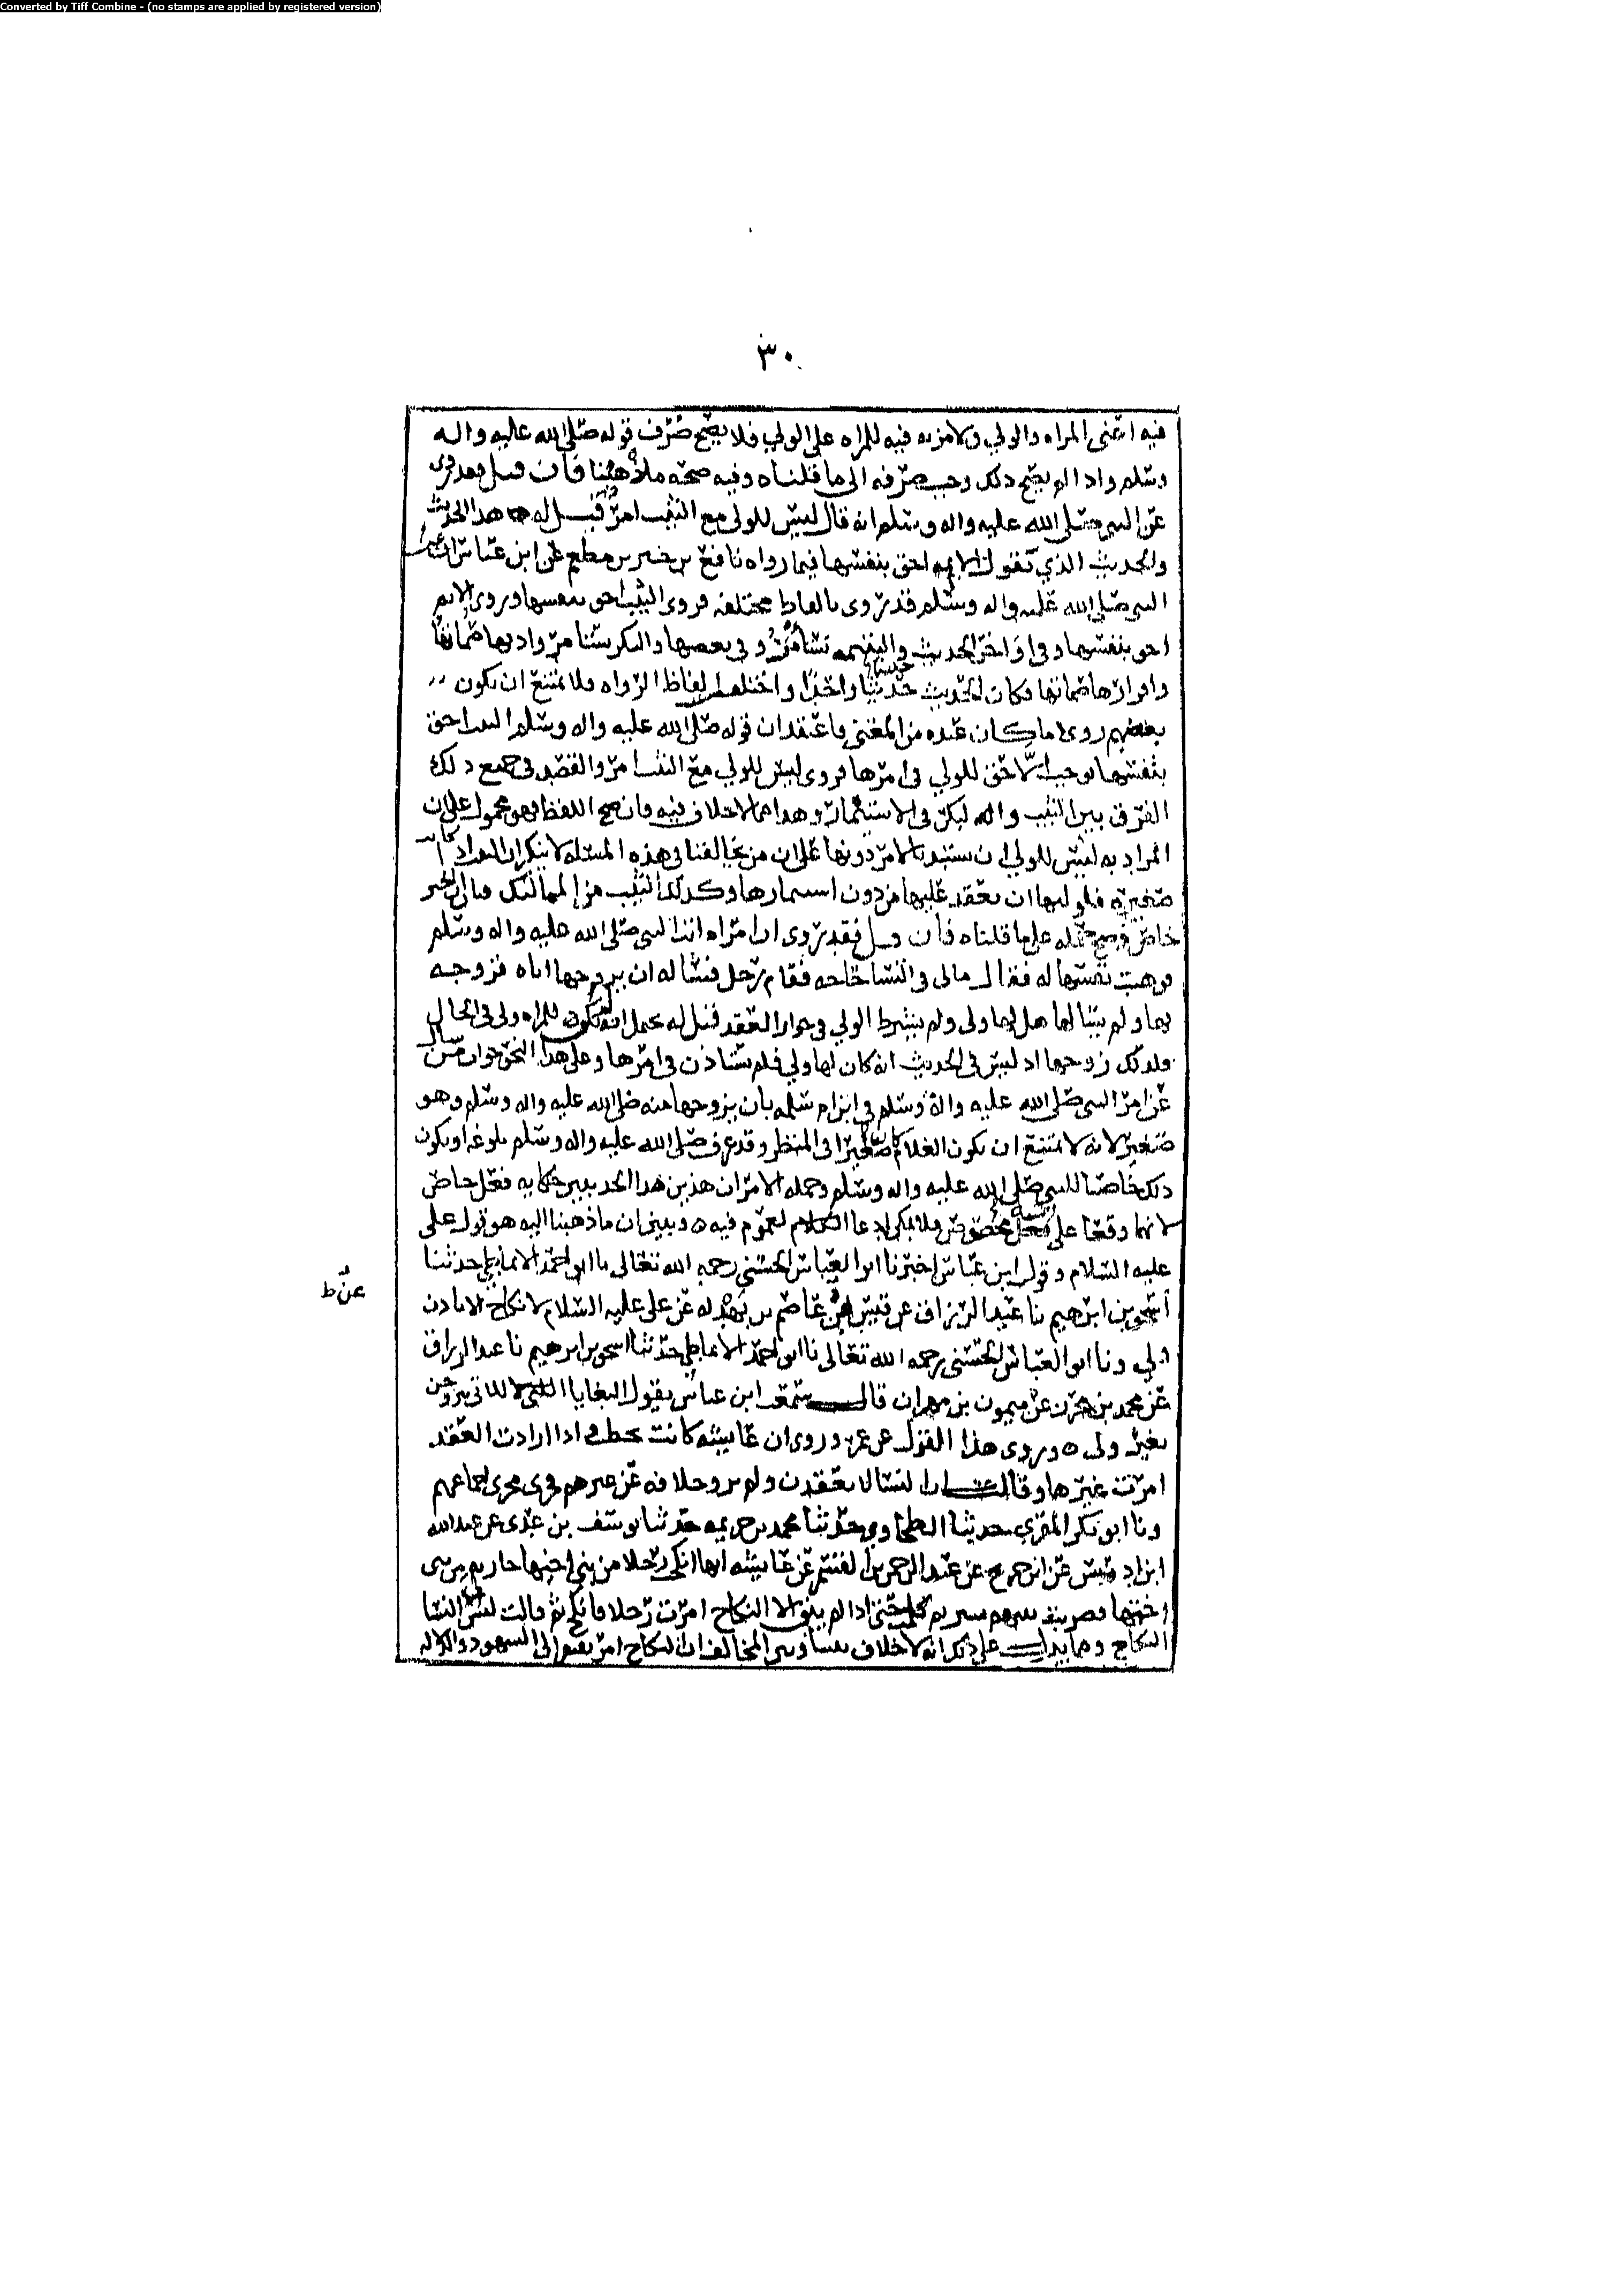 Converted by Tiff Combine - (no stamps are applied by registered version)
٣٠
فيه اعني المراه والولي ولا مزيه فيه للمراه على الولي فلا يصح صرف قوله صلى الله عليه واله
وسلم واذا لم يصح ذلك وجب صرفه الى ما قلناه وفيه صحه ما ذهبنا فان قيل فقد روي
عن النبي صلى الله عليه واله وسلم انه قال ليس للولي مع الثيب امر قيل له هذا الحديث
والحديث الذي تقول الايم احق بنفسها فيما رواه نافع بن جبير بن مطعم عن ابن عباس عن
النبي صلى الله عليه واله وسلم قد روي بالفاظ مختلفه فروي الثيب احق بنفسها وروي الايم
احق بنفسها وفي اواخر الحديث واليتيمه تستامر وفي بعضها والبكر يستامر وإذنها صماتها
واقرارها صماتها فكان الحديث حديثا واحدا واختلف الفاظ الرواه فلا يمتنع ان يكون
بعضهم روى ما كان عنده من المعنى فاعتقد ان قوله صلى الله عليه واله وسلم الثيب احق
بنفسها يوجب الا حق للولي في امرها فروى ليس للولي مع الثيب امر والقصد في جميع ذلك
الفرق بين الثيب والبكر في الاستئمار وهذا مما لا خلاف فيه فان صح اللفظ فهو محمول على ان
المراد به ليس للولي ان يستبد بالامر دونها على ان من يخالفنا في هذه المسئله لا ينكر ان الثيب اذا كانت
صغيره فلوليها ان يعقد عليها من دون استيمارها وكذلك الثيب من المماليك فبان ان الخبر
خاص فيصح حمله على ما قلناه فان قيل فقد روي ان امراه اتت النبي صلى الله عليه واله وسلم
فوهبت نفسها له فقال مالي في النسا حاجه فقام رجل فسأله ان يزوجها اياه فزوجه
بها ولم يسالها هل لها ولي ولم يشترط الولي في جواز العقد قيل له يحمل انه لم يكون للمراه ولي في الحال
ولذلك زوجها اذ ليس في الحديث انه كان لها ولي فلم يستاذن في امرها وعلى هذا النحو جواب من سال
عن امر النبي صلى الله عليه واله وسلم في ابن ام سلمه بان يزوجها منه صلى الله عليه واله وسلم وهو
صغير لانه لا يمتنع ان يكون الغلام كان صغيرا في المنظر وقد عرف صلى الله عليه واله وسلم بلوغه او يكون
ذلك خاصا للنبي صلى الله عليه واله وسلم وجمله الامر ان هذين الحديثين حكايه فعل خاص
لانهما وقعا على محل مخصوص فلا يمكن ادعا العموم فيه ه ويبين ان ما ذهبنا اليه هو قول علي
عليه السلام وقول ابن عباس اخبرنا ابو العباس الحسني رحمه الله تعالى نا ابو احمد الانماطي حدثنا
اسحق بن ابرهيم نا عبد الرزاق عن قيس عن عاصم بن بهدله عن علي عليه السلام لا نكاح الا باذن
ولي ونا ابو العباس الحسني رحمه الله تعالى نا ابو احمد الانماطي حدثنا اسحق بن ابرهيم نا عبد الرزاق
عن محمد بن محرز عن ميمون بن مهران قال سمعت ابن عباس يقول البغايا اللاتي يتزوجن
بغير ولي ه وروي هذا القول عن عمر وروي ان عايشه كانت تخطب فاذا ارادت العقد
امرت غيرها وقالت ان النسا لا يعقدن ولم يرو خلافه عن غيرهم فجرى مجرى اجماعهم
ونا ابو بكر المقري حدثنا الطحاوي حدثنا محمد بن خزيمه حدثنا يوسف بن عدي عن عبد الله
ابن ادريس عن ابن جريج عن عبد الرحمن بن القسم عن عايشه انها انكحت رجلا من بني اخيها جاريه من بني
اختها فضربت بينهم بستر ثم تكلمت حتى اذا لم يبق الا النكاح امرت رجلا فانكح ثم قالت ليس الى النسا
النكاح ومما يدل على ذلك انه لا خلاف بيننا وبين المخالف ان النكاح امر يفتقر الى الشهود والولاية
عن ط